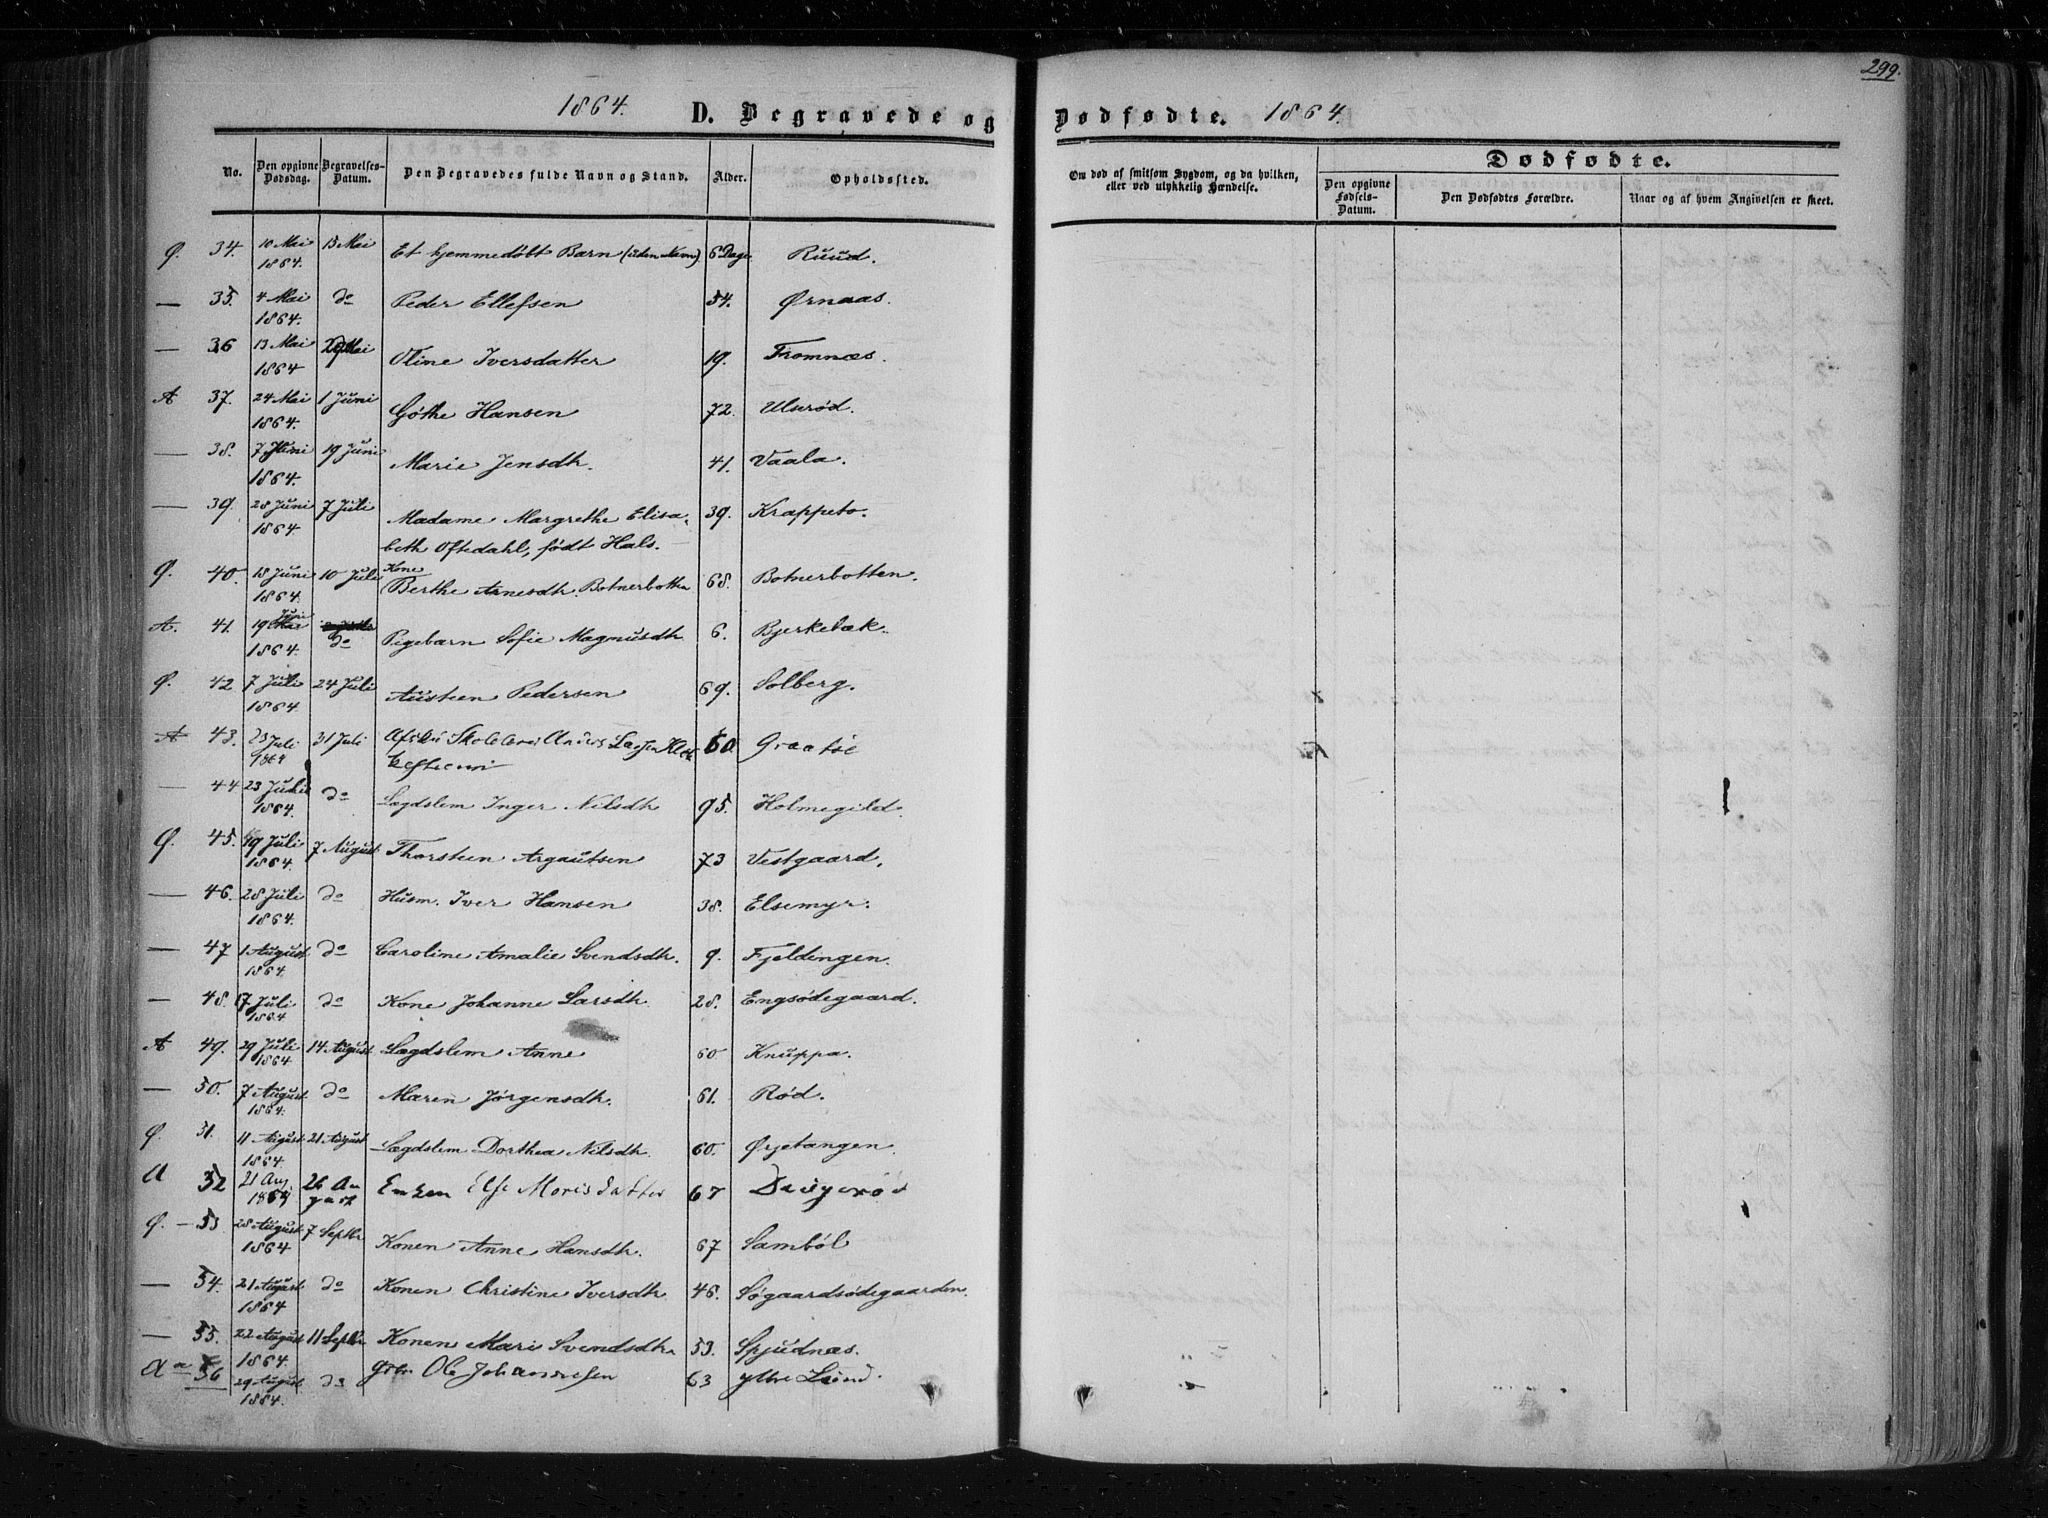 299.
1864. D. Begravede og Dødfødte. 1864.
No. Den opgivne Dødsdag. Begravelses-Datum. Den Begravedes fulde Navn og Stand. Alder. Opholdssted.
Om død af smitsom Sygdom, og da hvilken, eller ved ulykkelig Hændelse.
Dødfødte.
Den opgivne Fødsels-Datum. Den Dødfødtes Forældre. Naar og af hvem Angivelsen er skeet.
Ø. 34. 10 Mai 1864. 15 Mai Et hjemmedøbt Barn (uden Navn) 6 Dage. Ruud.
— 35. 4 Mai 1864. do Peder Ellefsen 54. Ørnaas.
— 36 13 Mai 1864 Mai Oline Iversdatter 19. Tromnæs.
A 37. 24 Mai 1864. 1 Juni Göthe Hansen 72. Ulsrød.
— 38. 7 Juni 1864. 19 Juni Marie Jensdtr. 41. Vaala.
— 39. 28 Juni 1864. 7 Juli Madame Margrethe Elisa- 39. Krappeto.
beth Oftedahl, født Hals.
Ø. 40. 18 Juni 1864. 10 Juli Kone Berthe Arnesdtr. Botnerbotten 68. Botnerbotten.
A. 41. 19 Juni 1864. do Pigebarn Sofie Magnusdtr 6. Bjerkebæk.
Ø. 42 7 Juli 1864. 24 Juli Austeen Pedersen 69. Solberg.
A 43. 23 Juli 1864 31 Juli Afsk. Skolelærer Anders Larsen 60. Graatøe
— 44 23 1864. do Lægdslem Inger Nilsdtr 95. Holmegild.
Ø. 45. 19 Juli 1864. 7 August Thorsteen Argautsen 73 Vestgaard.
— 46. 28 Juli 1864. do Husm. Iver Hansen 38. Elsemyr.
— 47 1 August 1864. do Caroline Amalie Svendsdtr. 9. Fjeldengen.
— 48. 17 Juli 1864 do Kone Johanne Larsdtr 28. Engsødegaard.
A 49. 29 Juli 1864 14 August Lægdslem Anne 60. Knuppa.
— 50. 7 August 1864. do Maren Jørgensdtr. 61. Rød.
Ø. 51. 11 August 1864. 21 August Lægdslem Dorthea Nilsdtr. 60. Ørjetangen.
A 52 21 Aug. 1864 26 August Enken Else Morisdatter 67
Ø. — 53 28 August 1864 7 Septbr. Konen Anne Hansdtr. 67 Sambøl
— 54. 21 August 1864 do Konen Christine Iversdtr 46. Søgaardsødegaarden.
— 55. 22 August 1864. 11 Septbr Konen Mari Svendsdtr. 53. Spjudnæs.
A 56 29 August 1864. do Gbr. Ole Johannesen 63 ytre Lund.